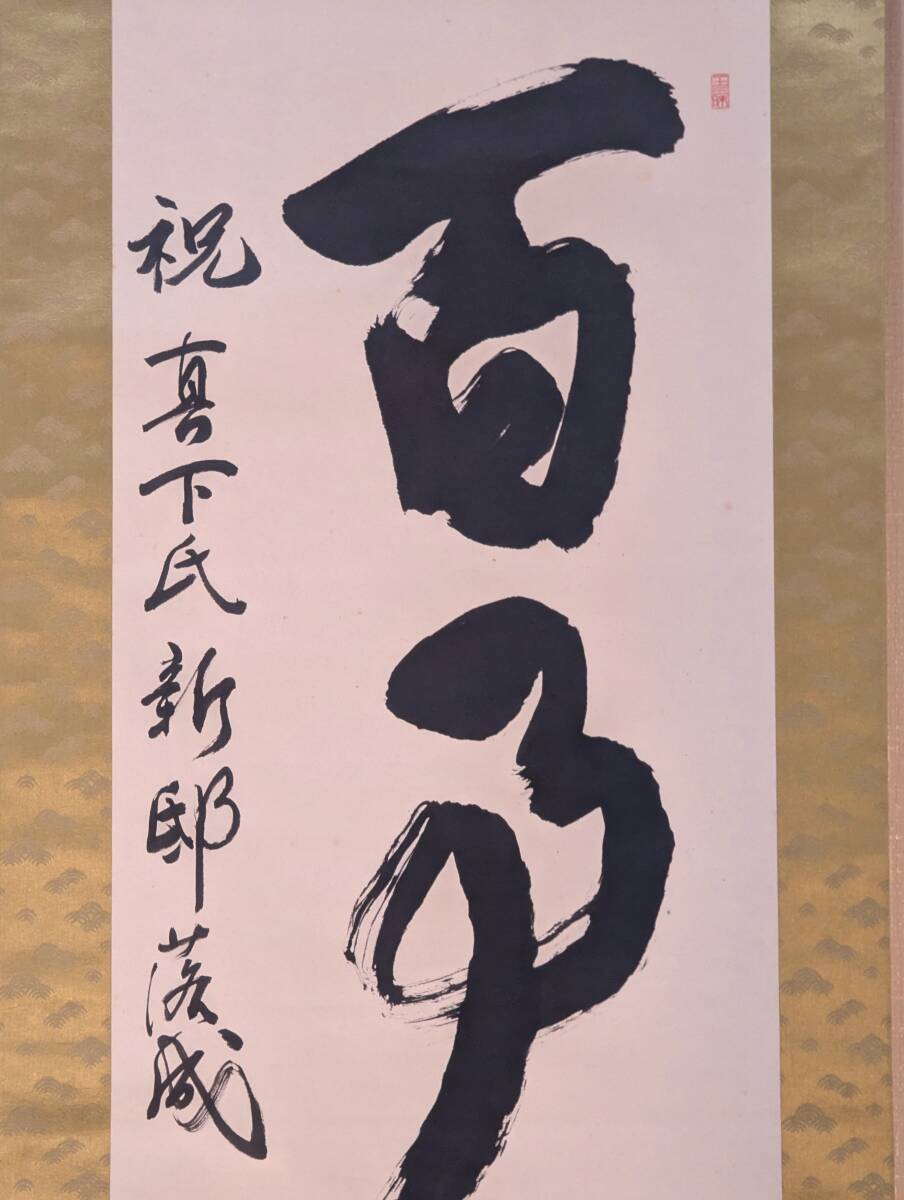 百事
祝 真下氏 新邸落成